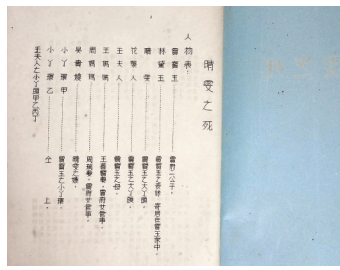 晴雯之死
人物表：
賈寶玉………賈府二公子。
林黛玉………賈寶玉之表妹，寄居在賈玉家中。
晴雯………賈寶玉之大丫頭。
花襲人………賈寶玉之大丫頭。
王夫人………賈寶玉之母。
王媽媽………王善保妻，賈府女管事。
周媽媽………周瑞妻，賈府女管事。
吳貴媳………晴雯之嫂。
小丫頭甲………賈寶玉之小丫頭。
小丫頭乙………仝上。
王夫人之小丫頭甲乙丙丁